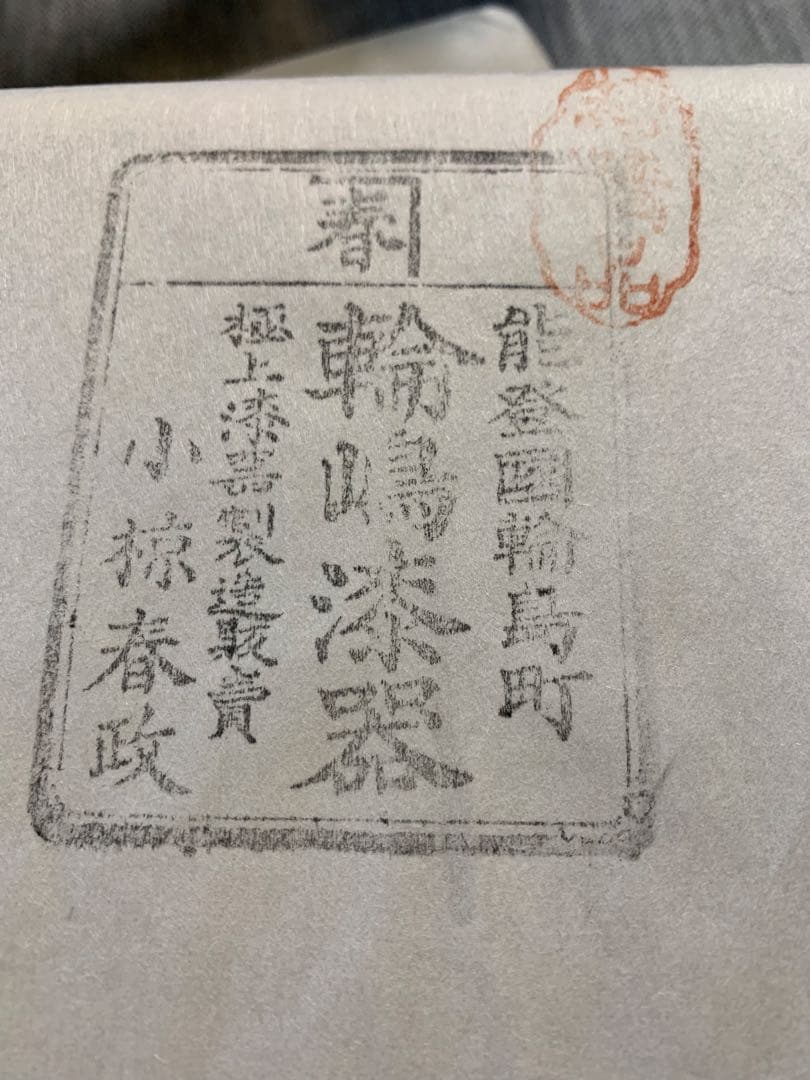 春
能登國輪島町
輪嶋漆器
極上漆器製造販賣
小椋春政
品